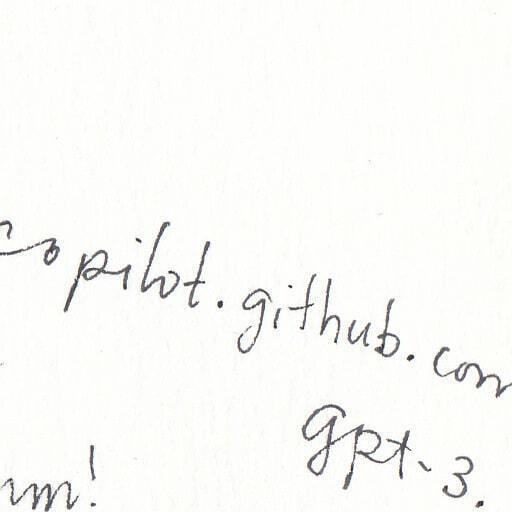 copilot.github.com
gpt-3.